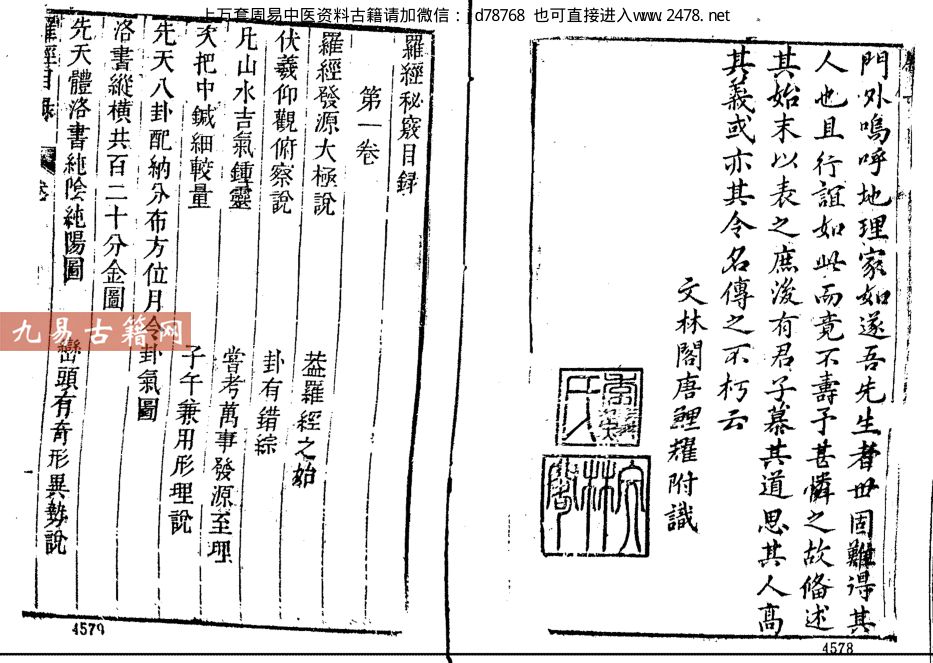 上万套周易中医资料古籍请加微信：jd78768 也可直接进入www.2478.net
門外嗚呼地理家如遂吾先生者世固難得其
人也且行誼如此而竟不壽予甚憐之故俻述
其始末以表之庶後有君子慕其道思其人高
其義或亦其令名傳之不朽云
文林閣唐鯉耀附識
文林閣
4578
羅經秘竅目録
第一卷
羅經發源太極說
葢羅經之始
伏羲仰觀俯察說
卦有錯綜
凡山水吉氣鍾靈
嘗考萬事發源至理
欠把中鍼細較量
子午兼用形理說
先天八卦配納分布方位月令卦氣圖
洛書縱橫共百二十分金圖
先天體洛書純陰純陽圖
巒頭有奇形異勢說
羅經目録
卷
4579
九易古籍网